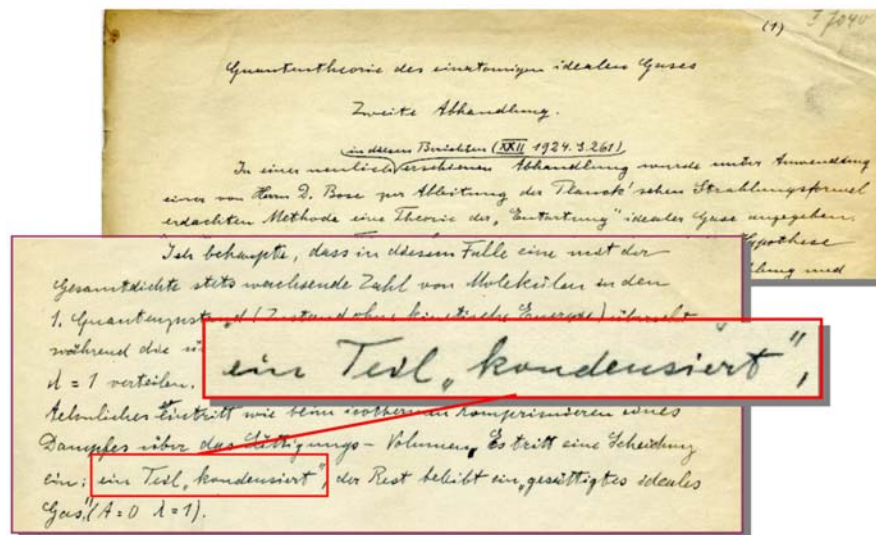 (1)
Quantentheorie des einatomigen idealen Gases
Zweite Abhandlung.
in diesen Berichten (XXII 1924. S. 261)
In einer neulich erschienen Abhandlung wurde unter Anwendung
einer von Herrn D. Bose zur Ableitung der Planck'schen Strahlungsformel
erdachten Methode eine Theorie der „Entartung" idealer Gase angegeben.
Hypothese
und
Ich behaupte, dass in diesem Falle eine mit der
Gesamtdichte stets wachsende Zahl von Molekülen in den
1. Quantenzustand (Zustand ohne kinetische Energie) übergeht
während die
λ = 1 verteilen.
ein Teil „kondensiert",
Aehnliches eintritt wie beim isothermen Komprimieren eines
Dampfes über das Sättigungs-Volumen. Es tritt eine Scheidung
ein; ein Teil „kondensiert", der Rest bleibt ein „gesättigtes ideales
Gas." (A=0 λ=1).